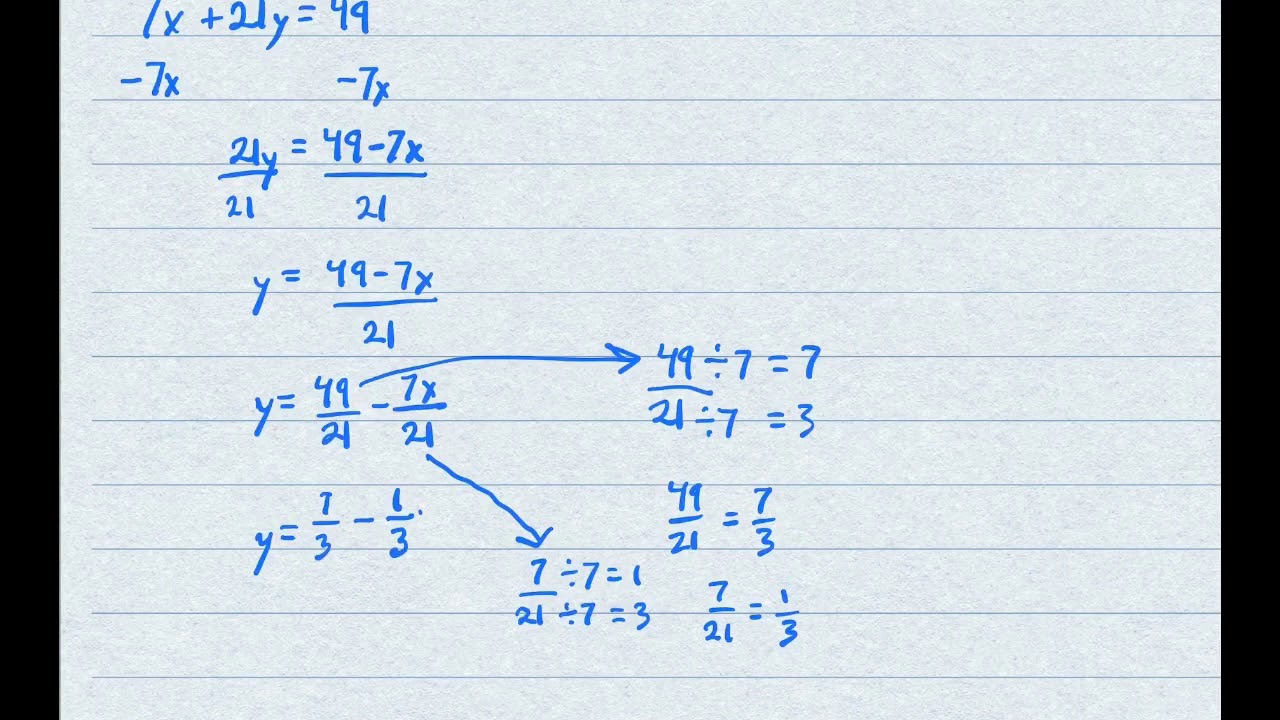 7x + 21y = 49
-7x -7x
21y = 49-7x
21 21
y = 49-7x
21
y = 49/21 - 7x/21
49 ÷7 = 7
21 ÷7 = 3
y = 7/3 - 1/3
49/21 = 7/3
7 ÷7 = 1
21 ÷7 = 3
7/21 = 1/3